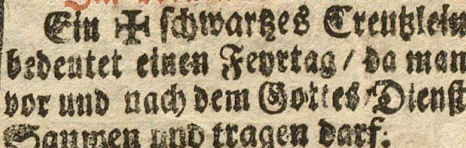 Ein ✠ schwartzes Creutzlein
bedeutet einen Feyrtag / da man
vor und nach dem Gottes-Dienst
Saumen und tragen darf.